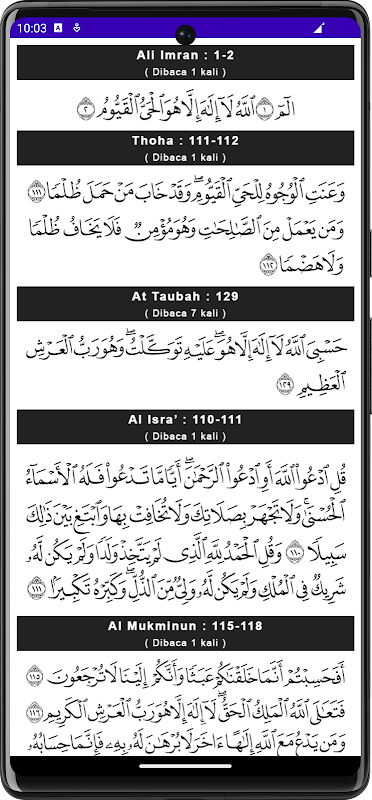 10:03
Ali Imran : 1-2
( Dibaca 1 kali )
الٓمٓ ١ ٱللَّهُ لَآ إِلَٰهَ إِلَّا هُوَ ٱلْحَىُّ ٱلْقَيُّومُ ٢
Thoha : 111-112
( Dibaca 1 kali )
وَعَنَتِ ٱلْوُجُوهُ لِلْحَىِّ ٱلْقَيُّومِ ۖ وَقَدْ خَابَ مَنْ حَمَلَ ظُلْمًا ١١١
وَمَن يَعْمَلْ مِنَ ٱلصَّٰلِحَٰتِ وَهُوَ مُؤْمِنٌ فَلَا يَخَافُ ظُلْمًا
وَلَا هَضْمًا ١١٢
At Taubah : 129
( Dibaca 7 kali )
حَسْبِىَ ٱللَّهُ لَآ إِلَٰهَ إِلَّا هُوَ ۖ عَلَيْهِ تَوَكَّلْتُ ۖ وَهُوَ رَبُّ ٱلْعَرْشِ
ٱلْعَظِيمِ ١٢٩
Al Isra’ : 110-111
( Dibaca 1 kali )
قُلِ ٱدْعُوا۟ ٱللَّهَ أَوِ ٱدْعُوا۟ ٱلرَّحْمَٰنَ ۖ أَيًّا مَّا تَدْعُوا۟ فَلَهُ ٱلْأَسْمَآءُ
ٱلْحُسْنَىٰ ۚ وَلَا تَجْهَرْ بِصَلَاتِكَ وَلَا تُخَافِتْ بِهَا وَٱبْتَغِ بَيْنَ ذَٰلِكَ
سَبِيلًا ١١٠ وَقُلِ ٱلْحَمْدُ لِلَّهِ ٱلَّذِى لَمْ يَتَّخِذْ وَلَدًا وَلَمْ يَكُن لَّهُۥ
شَرِيكٌ فِى ٱلْمُلْكِ وَلَمْ يَكُن لَّهُۥ وَلِىٌّ مِّنَ ٱلذُّلِّ ۖ وَكَبِّرْهُ تَكْبِيرًۢا ١١١
Al Mukminun : 115-118
( Dibaca 1 kali )
أَفَحَسِبْتُمْ أَنَّمَا خَلَقْنَٰكُمْ عَبَثًا وَأَنَّكُمْ إِلَيْنَا لَا تُرْجَعُونَ ١١٥
فَتَعَٰلَى ٱللَّهُ ٱلْمَلِكُ ٱلْحَقُّ ۖ لَآ إِلَٰهَ إِلَّا هُوَ رَبُّ ٱلْعَرْشِ ٱلْكَرِيمِ ١١٦
وَمَن يَدْعُ مَعَ ٱللَّهِ إِلَٰهًا ءَاخَرَ لَا بُرْهَٰنَ لَهُۥ بِهِۦ فَإِنَّمَا حِسَابُهُۥ